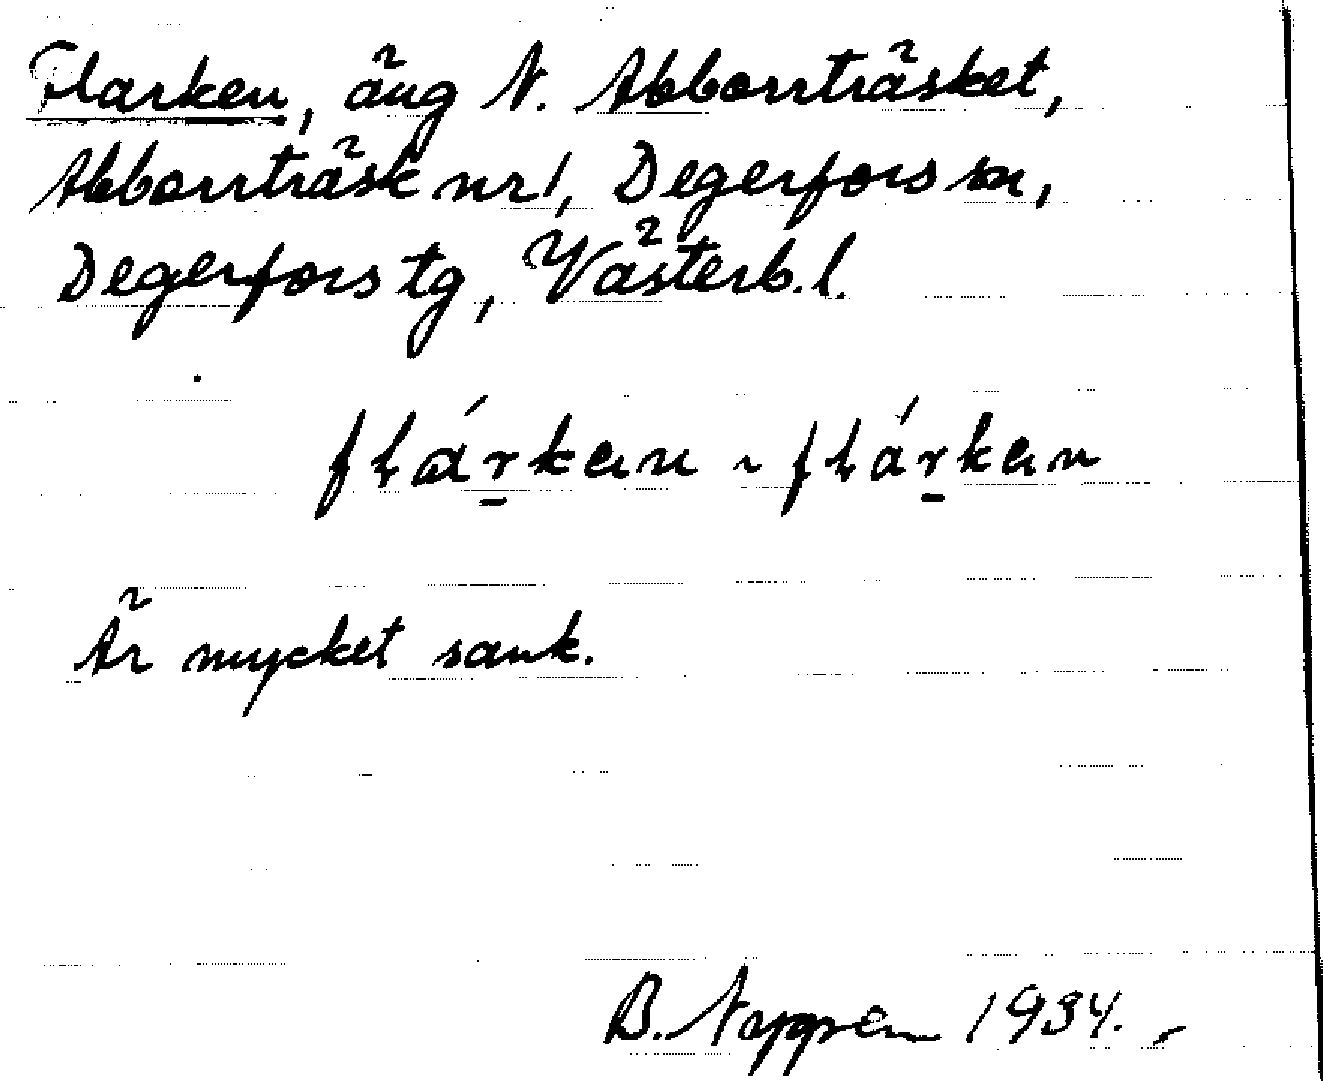 Flarken, äng N. Abborrträsket,
Abborrträsk nr 1, Degerfors sn,
Degerfors tg, Västerb. l.
flárken ~ flárken
Är mycket sank.
B. 1934.